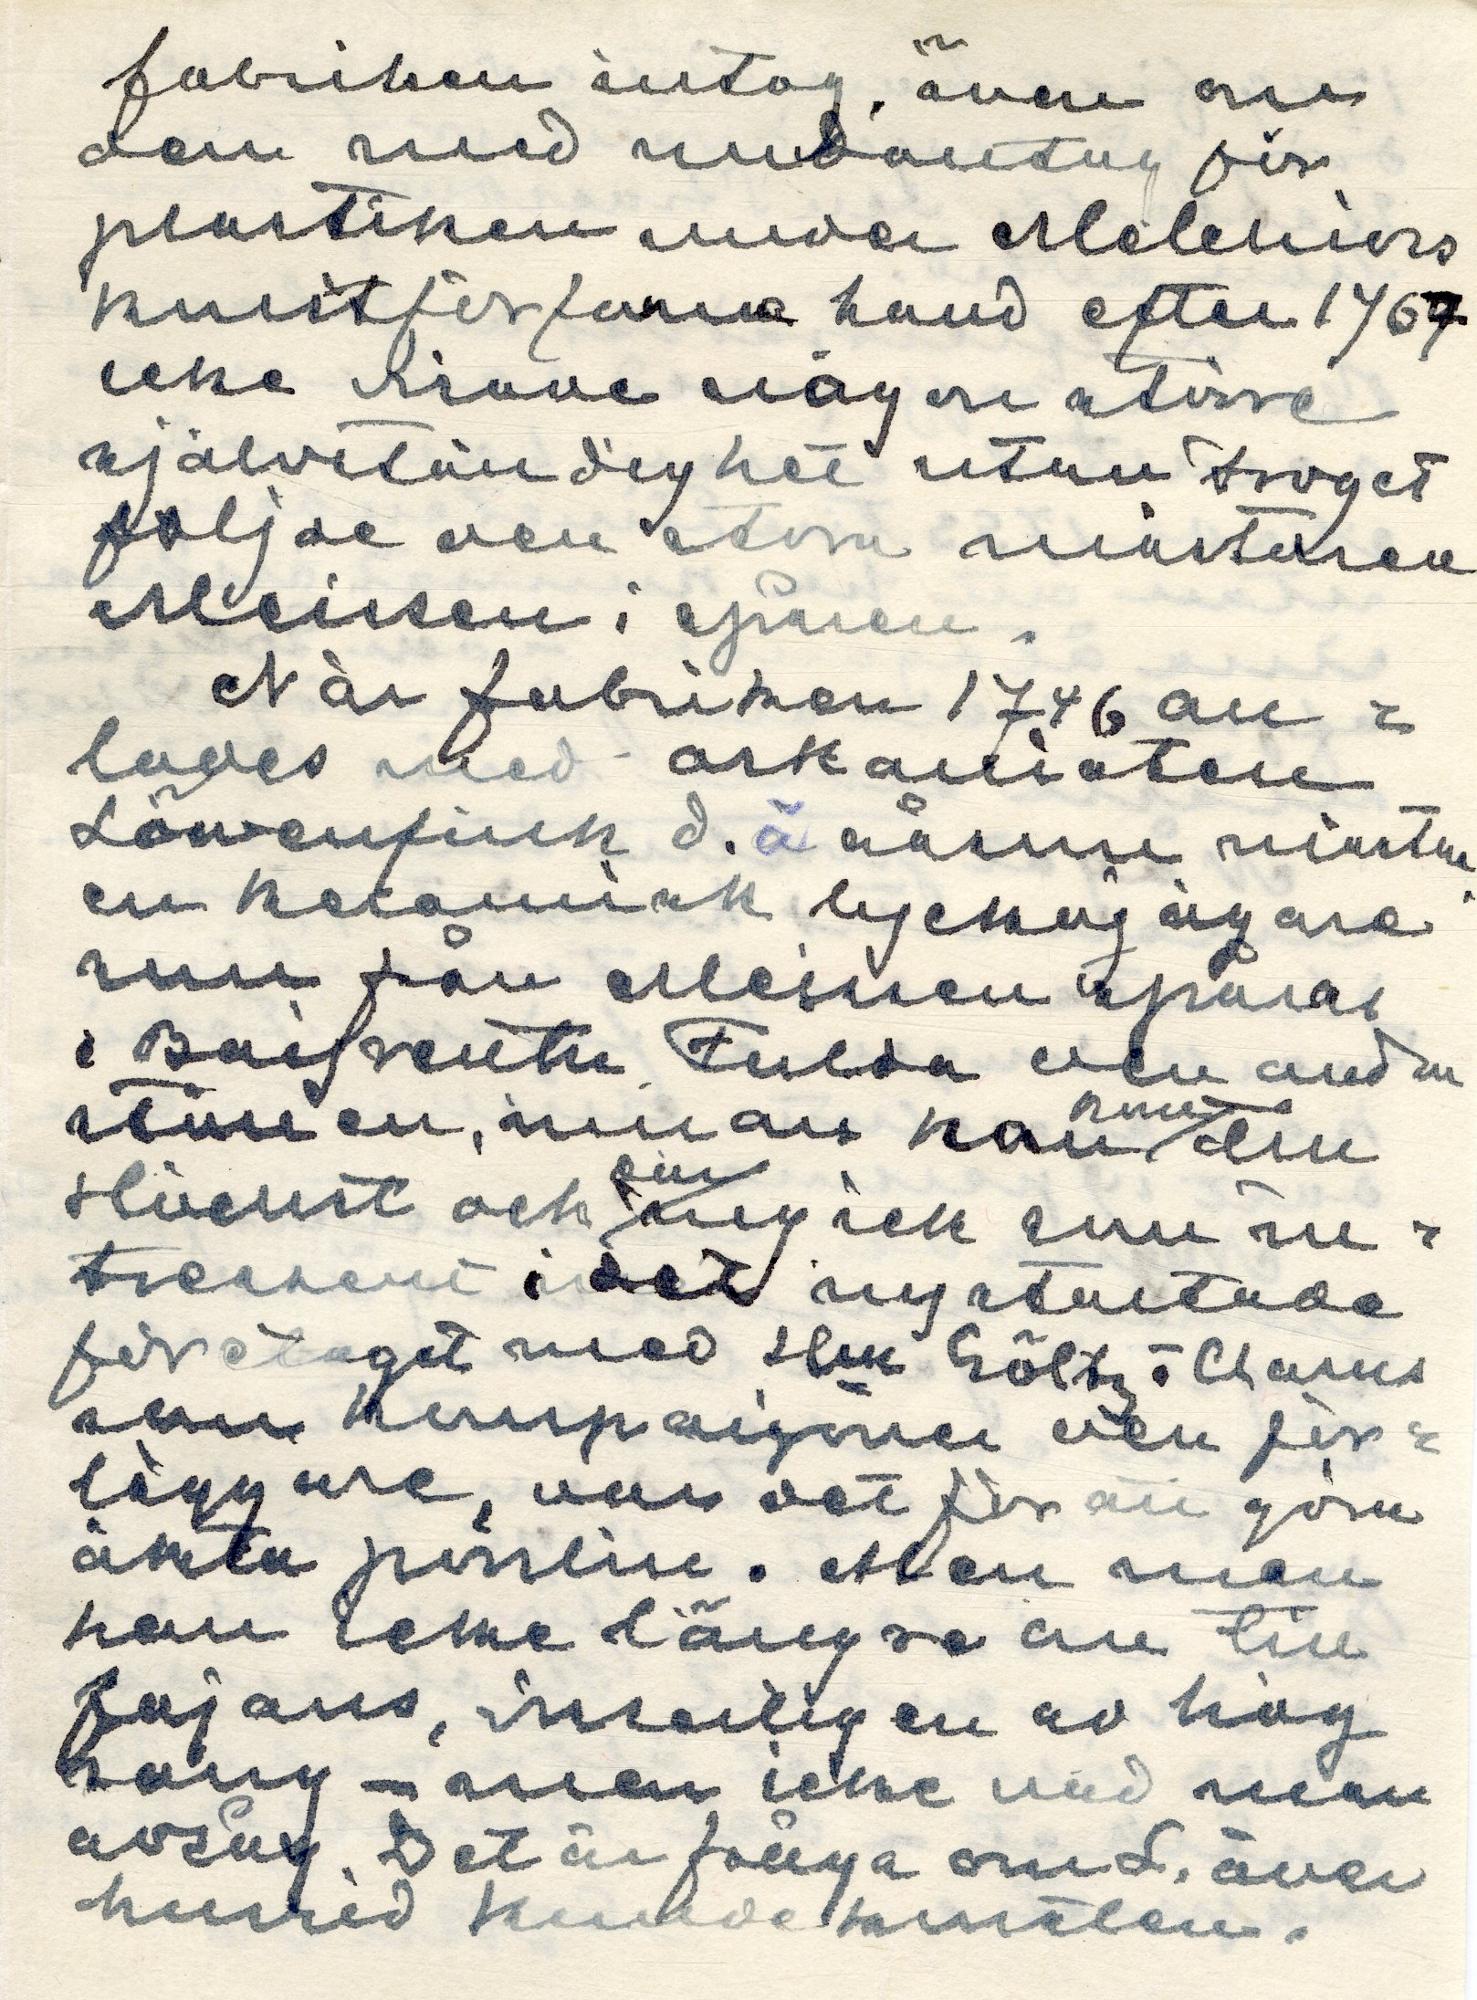 fabriken intog, även om
den med undantag för
plastiken under Melchiors
konstförfarna hand efter 1767
icke visade någon större
självständighet utan troget
följde den stora mästaren
Meissen i spåren.
När fabriken 1746 an=
lades med arkanisten
Löwenfinck d.ä såsom mästare
en keramisk lyckojägare
som från Meissen spåras
i Bayreuth, Fulda och andra
städer, innan han kom till
Höchst och där ingick som in=
tressent i det nystartade
företaget med Hrr Göltz & Clarus
som kompanjoner och för=
läggare, var det för att göra
äkta porslin. Men man
kom icke längre än till
fajans, visserligen av hög
rang – men icke vad man
avsåg. Det är fråga om L. över
huvud kunde konsten.